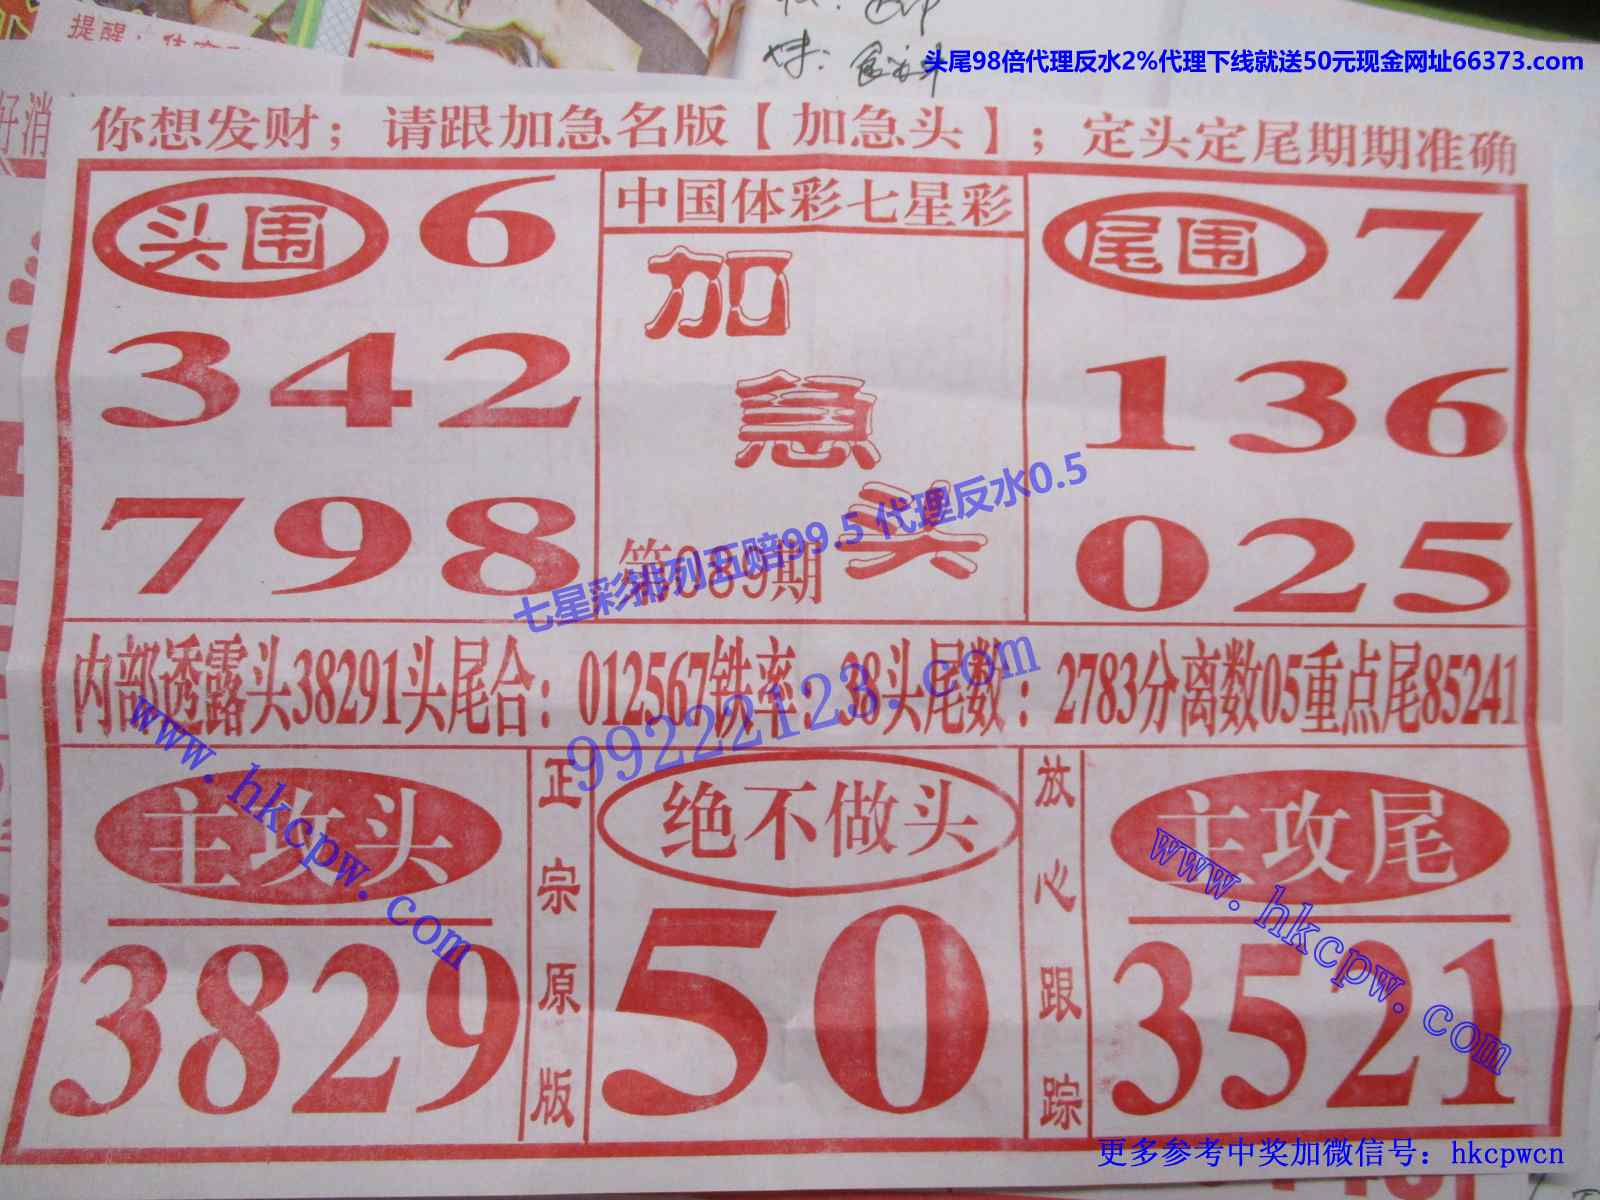 提醒:
妹:
头尾98倍代理反水2%代理下线就送50元现金网址66373.com
好消
你想发财;请跟加急名版【加急头】;定头定尾期期准确
头围 6
342
798
中国体彩七星彩
加
急
头
第089期
尾围 7
136
025
七星彩排列五赔99.5 代理反水0.5
内部透露头38291头尾合:012567铁率:38头尾数:2783分离数05重点尾85241
99222123.com
主攻头
3829
正宗原版
绝不做头
50
放心跟踪
主攻尾
3521
www.hkcpw.com
www.hkcpw.com
更多参考中奖加微信号:hkcpwcn